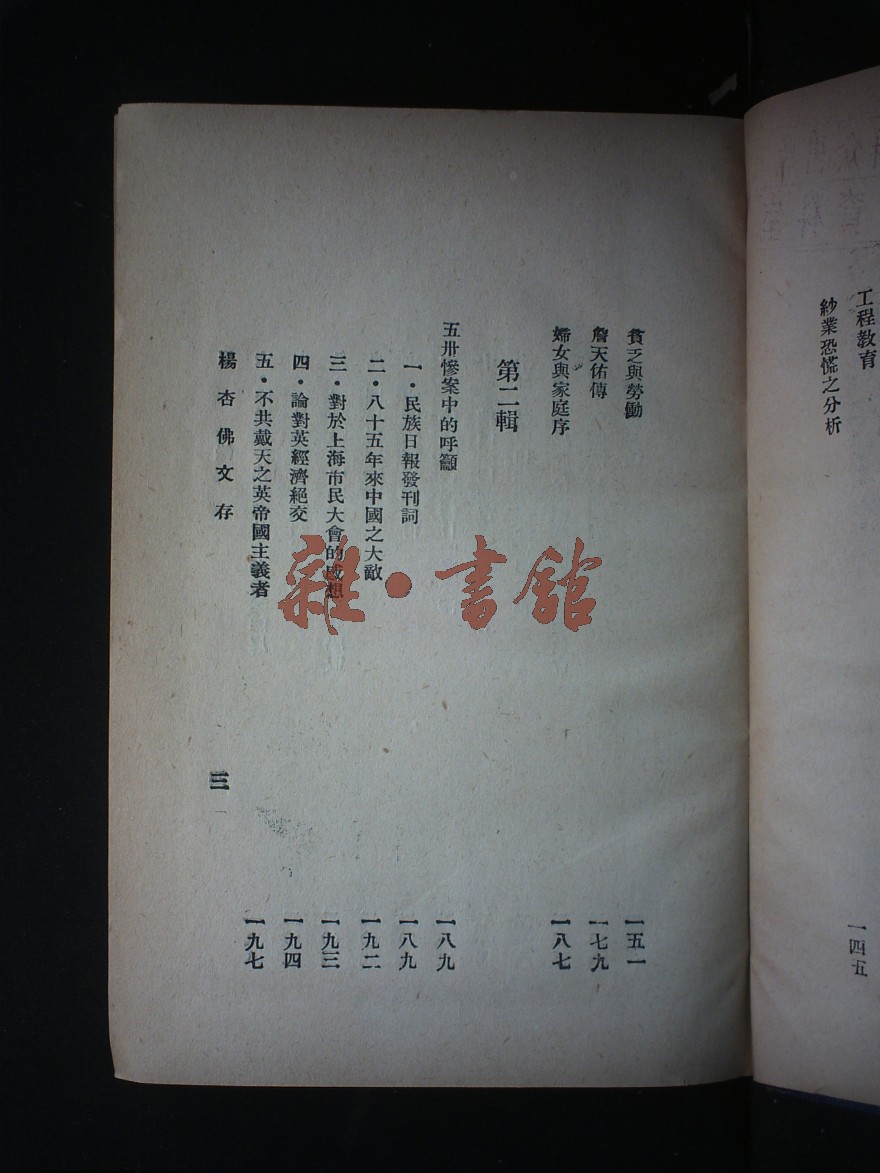 工程教育
紗業恐慌之分析
一四五
貧乏與勞働
一五一
詹天佑傳
一七九
婦女與家庭序
一八七
第二輯
五卅慘案中的呼籲
一八九
一・民族日報發刊詞
一八九
二・八十五年來中國之大敵
一九二
三・對於上海市民大會的感想
一九三
四・論對英經濟絕交
一九四
五・不共戴天之英帝國主義者
一九七
楊杏佛文存
三
雜・書館